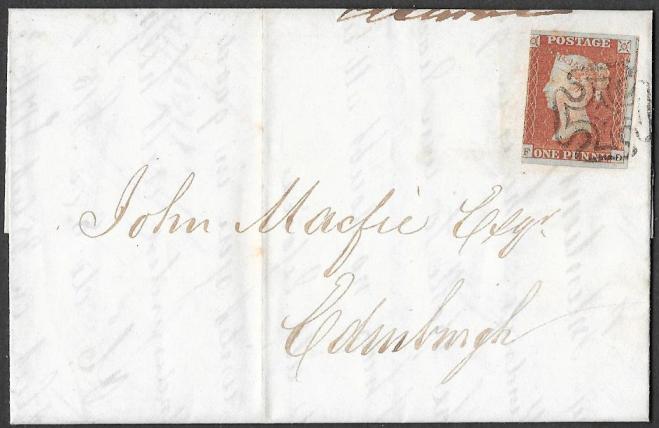 POSTAGE
F
ONE PENNY
John Macfie Esqr
Edinburgh